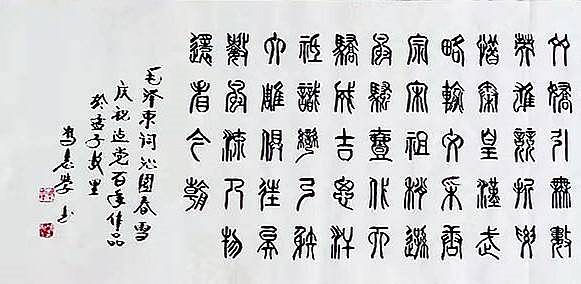 多嬌引無數
英雄競折腰
惜秦皇漢武
略輸文采唐
宗宋祖稍遜
風騷壹代天
驕成吉思汗
祗識彎弓射
大雕俱往矣
數風流人物
還看今朝
毛泽东词沁園春雪
庆祝建党百年作品
於孟子故里